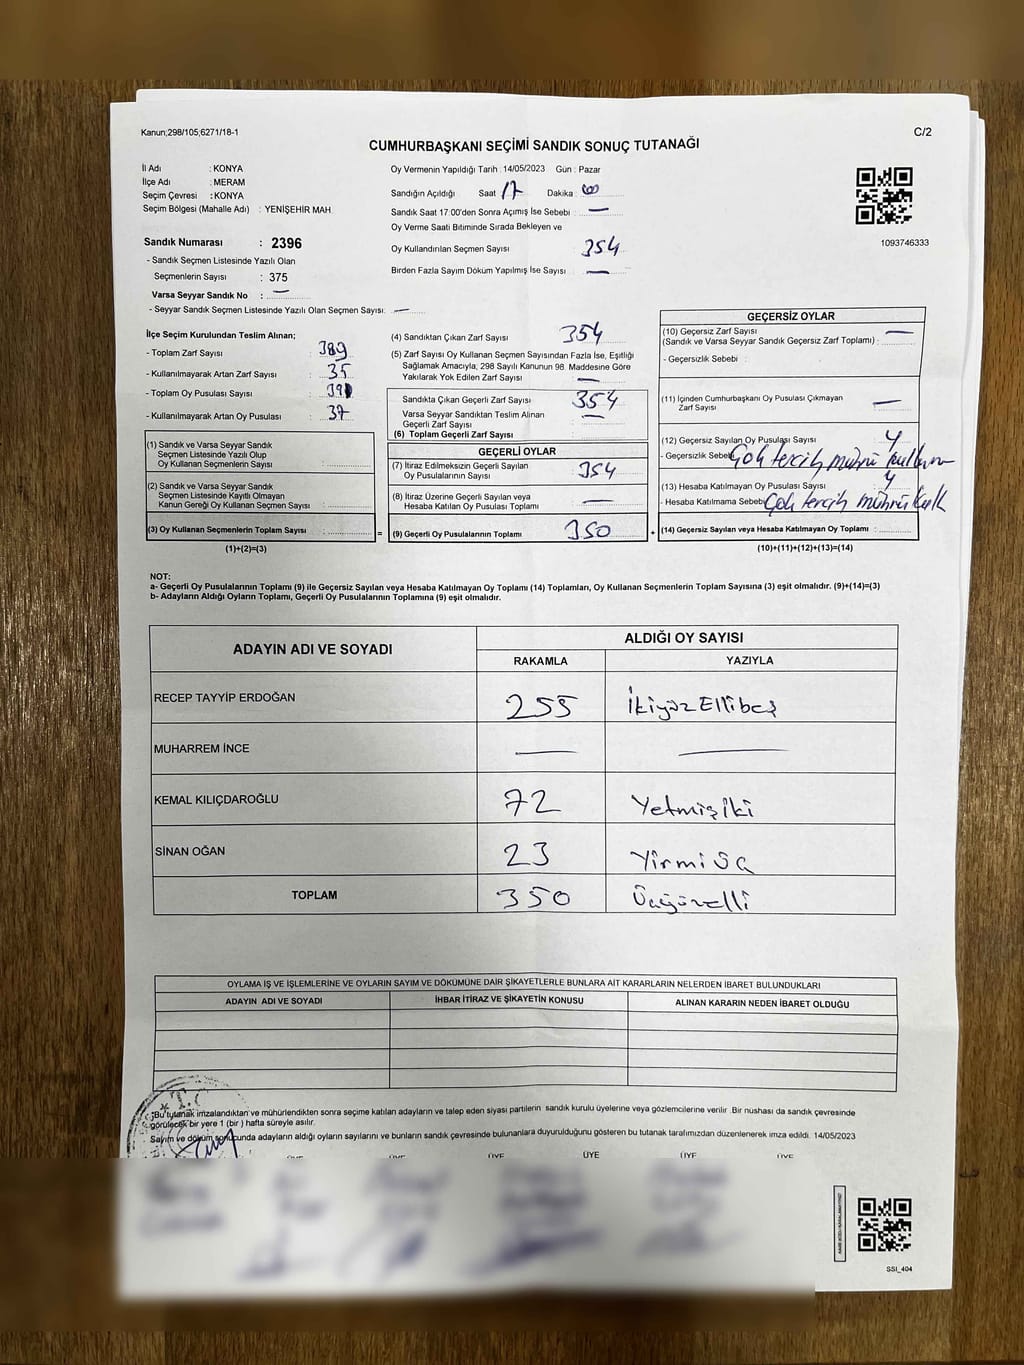 Kanun;298/105;6271/18-1
C/2
CUMHURBAŞKANI SEÇİMİ SANDIK SONUÇ TUTANAĞI
İl Adı : KONYA
İlçe Adı : MERAM
Seçim Çevresi : KONYA
Seçim Bölgesi (Mahalle Adı) : YENİŞEHİR MAH.
Sandık Numarası : 2396
- Sandık Seçmen Listesinde Yazılı Olan
Seçmenlerin Sayısı : 375
Varsa Seyyar Sandık No : —
- Seyyar Sandık Seçmen Listesinde Yazılı Olan Seçmen Sayısı: —
Oy Vermenin Yapıldığı Tarih : 14/05/2023 Gün : Pazar
Sandığın Açıldığı Saat 17 Dakika 00
Sandık Saat 17:00'den Sonra Açımış İse Sebebi : —
Oy Verme Saati Bitiminde Sırada Bekleyen ve
Oy Kullandırılan Seçmen Sayısı 354
Birden Fazla Sayım Döküm Yapılmış İse Sayısı : —
1093746333
İlçe Seçim Kurulundan Teslim Alınan;
- Toplam Zarf Sayısı : 389
- Kullanılmayarak Artan Zarf Sayısı : 35
- Toplam Oy Pusulası Sayısı : 391
- Kullanılmayarak Artan Oy Pusulası : 37
(1) Sandık ve Varsa Seyyar Sandık
Seçmen Listesinde Yazılı Olup
Oy Kullanan Seçmenlerin Sayısı :
(2) Sandık ve Varsa Seyyar Sandık
Seçmen Listesinde Kayıtlı Olmayan
Kanun Gereği Oy Kullanan Seçmen Sayısı :
(3) Oy Kullanan Seçmenlerin Toplam Sayısı :
(1)+(2)=(3)
(4) Sandıktan Çıkan Zarf Sayısı : 354
(5) Zarf Sayısı Oy Kullanan Seçmen Sayısından Fazla İse, Eşitliği
Sağlamak Amacıyla; 298 Sayılı Kanunun 98. Maddesine Göre
Yakılarak Yok Edilen Zarf Sayısı : —
Sandıkta Çıkan Geçerli Zarf Sayısı : 354
Varsa Seyyar Sandıktan Teslim Alınan
Geçerli Zarf Sayısı : —
(6) Toplam Geçerli Zarf Sayısı :
GEÇERLİ OYLAR
(7) İtiraz Edilmeksizin Geçerli Sayılan
Oy Pusulalarının Sayısı : 354
(8) İtiraz Üzerine Geçerli Sayılan veya
Hesaba Katılan Oy Pusulası Toplamı : —
= (9) Geçerli Oy Pusulalarının Toplamı : 350 +
GEÇERSİZ OYLAR
(10) Geçersiz Zarf Sayısı —
(Sandık ve Varsa Seyyar Sandık Geçersiz Zarf Toplamı) :
- Geçersizlik Sebebi :
(11) İçinden Cumhurbaşkanı Oy Pusulası Çıkmayan
Zarf Sayısı : —
(12) Geçersiz Sayılan Oy Pusulası Sayısı : 4
- Geçersizlik Sebebi Çok tercih mührü kullanma
(13) Hesaba Katılmayan Oy Pusulası Sayısı : 4
- Hesaba Katılmama Sebebi Çok tercih mührü kulk
(14) Geçersiz Sayılan veya Hesaba Katılmayan Oy Toplamı :
(10)+(11)+(12)+(13)=(14)
NOT:
a- Geçerli Oy Pusulalarının Toplamı (9) ile Geçersiz Sayılan veya Hesaba Katılmayan Oy Toplamı (14) Toplamları, Oy Kullanan Seçmenlerin Toplam Sayısına (3) eşit olmalıdır. (9)+(14)=(3)
b- Adayların Aldığı Oyların Toplamı, Geçerli Oy Pusulalarının Toplamına (9) eşit olmalıdır.
ADAYIN ADI VE SOYADI
ALDIĞI OY SAYISI
RAKAMLA YAZIYLA
RECEP TAYYİP ERDOĞAN 255 İkiyüzEllibeş
MUHARREM İNCE — —
KEMAL KILIÇDAROĞLU 72 Yetmişiki
SİNAN OĞAN 23 YirmiÜç
TOPLAM 350 Üçyüzelli
OYLAMA İŞ VE İŞLEMLERİNE VE OYLARIN SAYIM VE DÖKÜMÜNE DAİR ŞİKAYETLERLE BUNLARA AİT KARARLARIN NELERDEN İBARET BULUNDUKLARI
ADAYIN ADI VE SOYADI İHBAR İTİRAZ VE ŞİKAYETİN KONUSU ALINAN KARARIN NEDEN İBARET OLDUĞU
T.C.
Bu tutanak imzalandıktan ve mühürlendikten sonra seçime katılan adayların ve talep eden siyasi partilerin sandık kurulu üyelerine veya gözlemcilerine verilir. Bir nushası da sandık çevresinde
görülecek bir yere 1 (bir ) hafta süreyle asılır.
Sayım ve döküm sonucunda adayların aldığı oyların sayılarını ve bunların sandık çevresinde bulunanlara duyurulduğunu gösteren bu tutanak tarafımızdan düzenlenerek imza edildi. 14/05/2023
ÜYE ÜYE ÜYE ÜYE ÜYE ÜYE
SSI_404